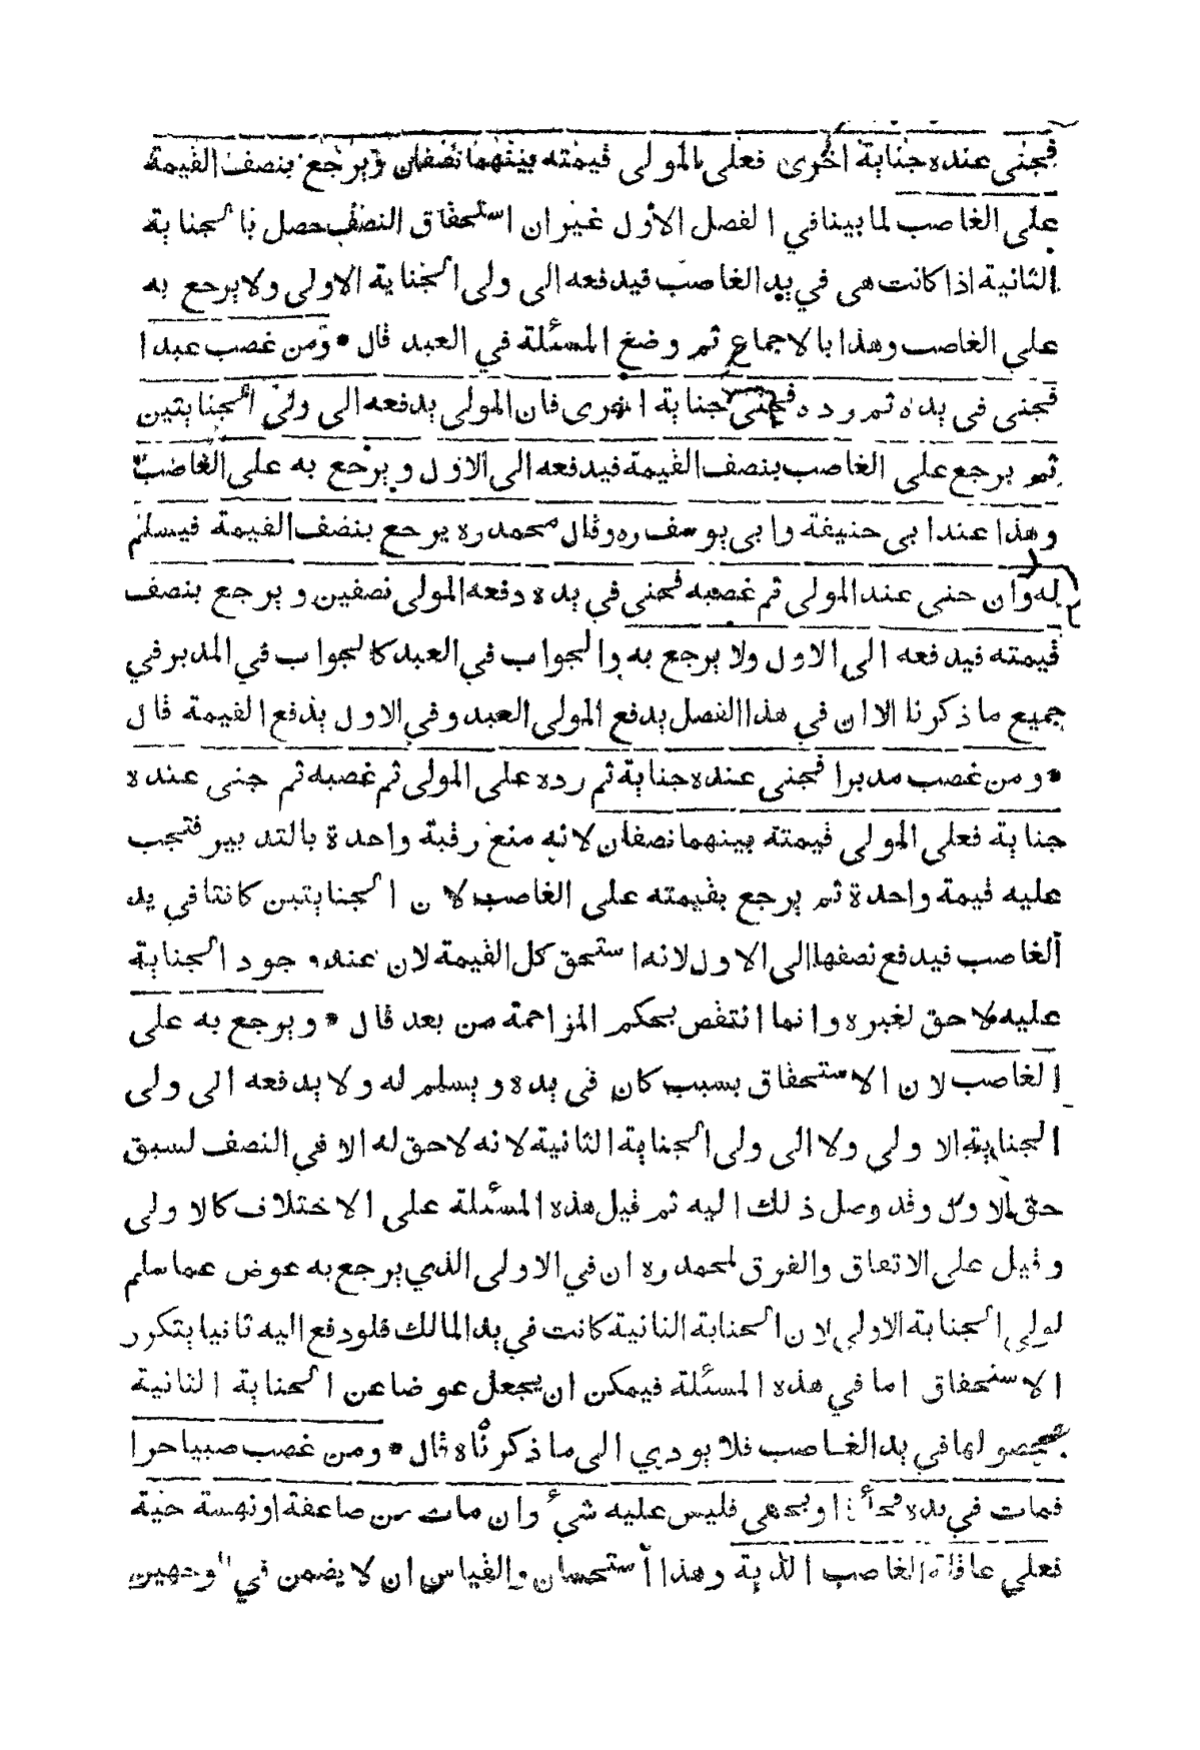 فجنى عنده جناية اخرى فعلى المولى قيمته بينهما نصفان ويرجع بنصف القيمة
على الغاصب لما بينا في الفصل الأول غير ان استحقاق النصف حصل بالجناية
الثانية اذا كانت هى في يد الغاصب فيدفعه الى ولى الجناية الاولى ولا يرجع به
على الغاصب وهذا بالاجماع ثم وضع المسئلة في العبد قال • ومن غصب عبدا
فجنى فى يده ثم رده فجنى جناية اخرى فان المولى يدفعه الى ولى الجنايتين
ثم يرجع على الغاصب بنصف القيمة فيدفعه الى الاول ويرجع به على الغاصب
وهذا عند ابى حنيفة وابى يوسف ره وقال محمد ره يرجع بنصف القيمة فيسلم
له وان جنى عند المولى ثم غصبه فجنى في يده دفعه المولى نصفين ويرجع بنصف
قيمته فيدفعه الى الاول ولا يرجع به والجواب في العبد كالجواب في المدبر في
جميع ما ذكرنا الا ان في هذا الفصل يدفع المولى العبد وفي الاول يدفع القيمة قال
• ومن غصب مدبرا فجنى عنده جناية ثم رده على المولى ثم غصبه ثم جنى عنده
جناية فعلى المولى قيمته بينهما نصفان لانه منع رقبة واحدة بالتدبير فتجب
عليه قيمة واحدة ثم يرجع بقيمته على الغاصب لان الجنايتين كانتا في يد
الغاصب فيدفع نصفها الى الاول لانه استحق كل القيمة لان عند وجود الجناية
عليه لا حق لغيره وانما انتقص بحكم المزاحمة من بعد قال • ويرجع به على
الغاصب لان الاستحقاق بسبب كان في يده ويسلم له ولا يدفعه الى ولى
الجناية الاولى ولا الى ولى الجناية الثانية لانه لا حق له الا في النصف لسبق
حق الاول وقد وصل ذلك اليه ثم قيل هذه المسئلة على الاختلاف كالاولى
وقيل على الاتفاق والفرق لمحمد ره ان في الاولى الذي يرجع به عوض عما سلم
لولى الجناية الاولى لان الجناية الثانية كانت في يد المالك فلو دفع اليه ثانيا يتكرر
الاستحقاق اما في هذه المسئلة فيمكن ان يجعل عوضا عن الجناية الثانية
لحصولها في يد الغاصب فلا يودي الى ما ذكرناه قال • ومن غصب صبيا حرا
فمات في يده فجأة او بحمى فليس عليه شئ وان مات من صاعقة او نهسة حية
فعلى عاقلة الغاصب الدية وهذا استحسان والقياس ان لا يضمن في الوجهين